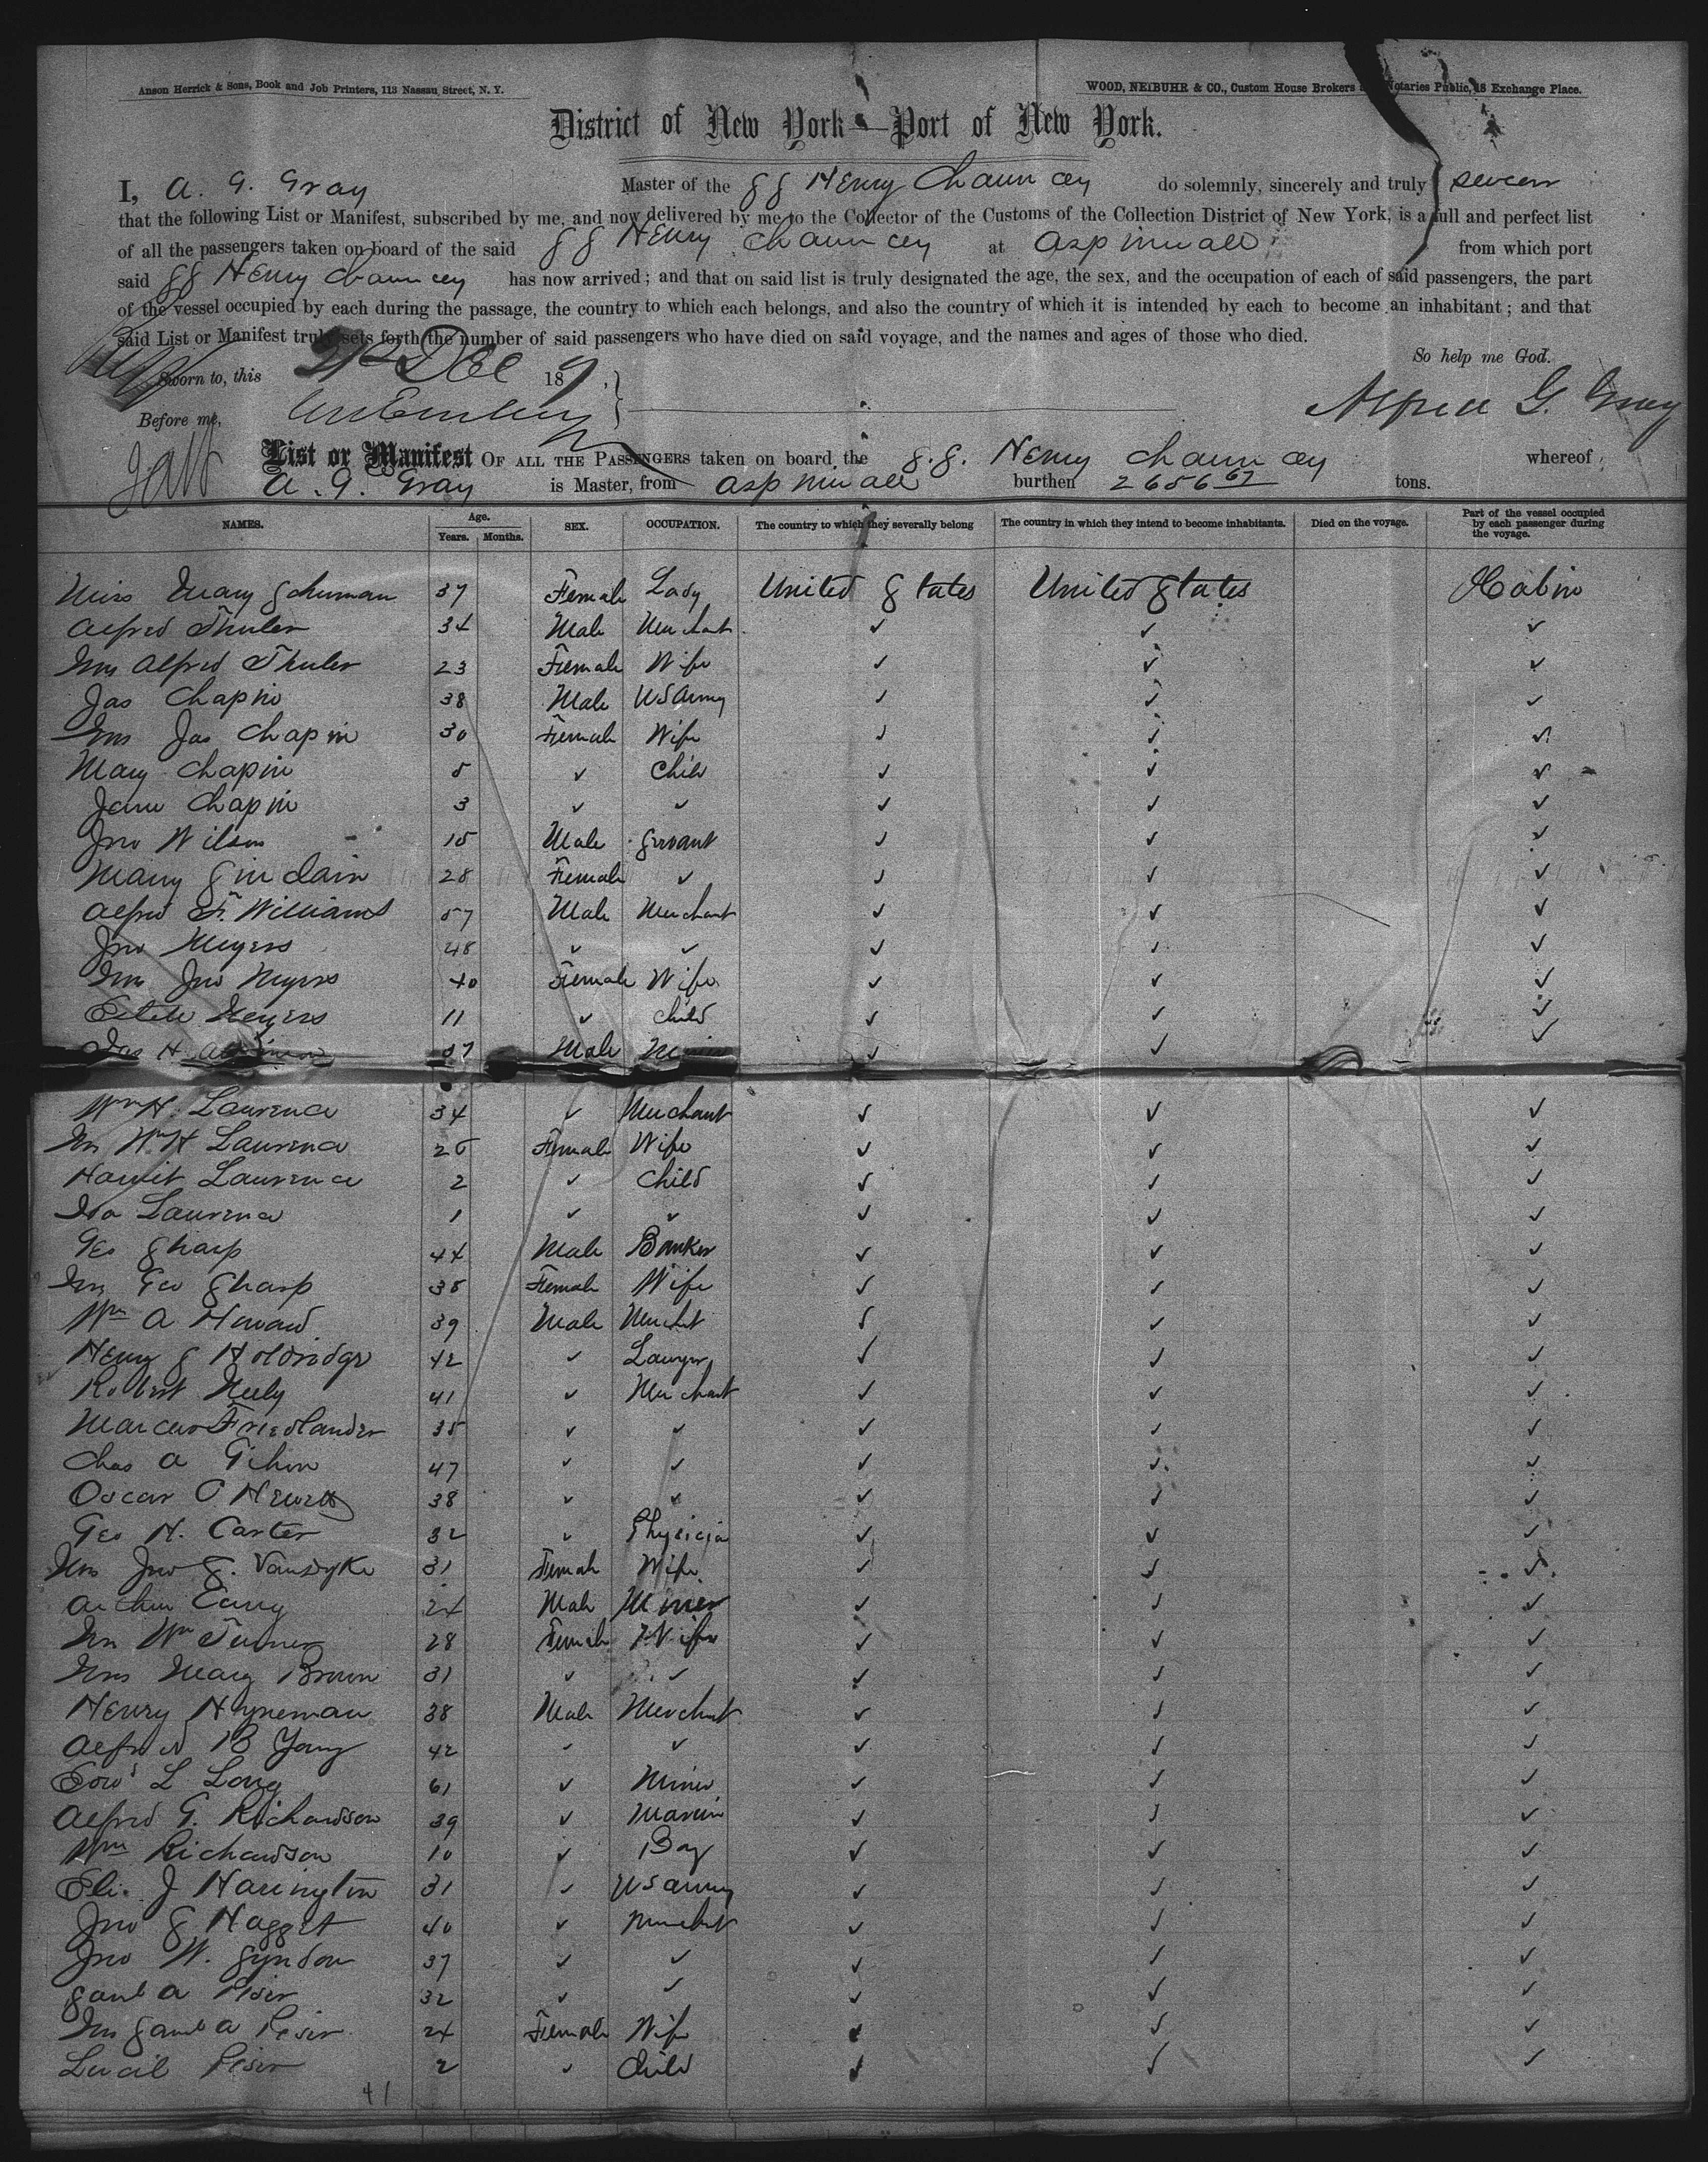 Anson Herrick & Sons, Book and Job Printers, 113 Nassau Street, N. Y.
WOOD, NEIBUHR & CO., Custom House Brokers Notaries Public, 18 Exchange Place.
District of New York—Port of New York.
I, A. G. Gray Master of the SS Henry Chauncey do solemnly, sincerely and truly swear
that the following List or Manifest, subscribed by me, and now delivered by me to the Collector of the Customs of the Collection District of New York, is a full and perfect list
of all the passengers taken on board of the said SS Henry Chauncey at Aspinwall from which port
said SS Henry Chauncey has now arrived; and that on said list is truly designated the age, the sex, and the occupation of each of said passengers, the part
of the vessel occupied by each during the passage, the country to which each belongs, and also the country of which it is intended by each to become an inhabitant; and that
said List or Manifest truly sets forth the number of said passengers who have died on said voyage, and the names and ages of those who died.
So help me God.
Sworn to, this Dec 18
Before me,
Alfred G. Gray
List or Manifest OF ALL THE PASSENGERS taken on board the S.S. Henry Chauncey whereof
A. G. Gray is Master, from Aspinwall burthen 2656 67 tons.
NAMES. Age. Years. Months. SEX. OCCUPATION. The country to which they severally belong The country in which they intend to become inhabitants. Died on the voyage. Part of the vessel occupied by each passenger during the voyage.
Miss Mary Schuman 37 Female Lady United States United States Cabin
Alfred 34 Male Merchant ✓ ✓ ✓
Mrs Alfred 23 Female Wife ✓ ✓ ✓
Jas Chapin 38 Male US Army ✓ ✓ ✓
Mrs Jas Chapin 30 Female Wife ✓ ✓ ✓
Mary Chapin 5 ✓ Child ✓ ✓ ✓
Jane Chapin 3 ✓ ✓ ✓ ✓ ✓
Jno Wilson 15 Male Servant ✓ ✓ ✓
Mary Sinclair 28 Female ✓ ✓ ✓ ✓
Alfred F. Williams 57 Male Merchant ✓ ✓ ✓
Jno Meyers 48 ✓ ✓ ✓ ✓ ✓
Mrs Jno Meyers 40 Female Wife ✓ ✓ ✓
Estelle Meyers 11 ✓ Child ✓ ✓ ✓
Jas H. 37 Male ✓ ✓ ✓
Wm H. Laurence 34 ✓ Merchant ✓ ✓ ✓
Mrs Wm H Laurence 26 Female Wife ✓ ✓ ✓
Harriet Laurence 2 ✓ Child ✓ ✓ ✓
Ida Laurence 1 ✓ ✓ ✓ ✓ ✓
Geo Sharp 44 Male Banker ✓ ✓ ✓
Mrs Geo Sharp 38 Female Wife ✓ ✓ ✓
Wm A Howard 39 Male Merchant ✓ ✓ ✓
Henry S Holdridge 42 ✓ Lawyer ✓ ✓ ✓
Robert Neely 41 ✓ Merchant ✓ ✓ ✓
Marcus Friedlander 35 ✓ ✓ ✓ ✓ ✓
Chas A Gihon 47 ✓ ✓ ✓ ✓ ✓
Oscar C Hewett 38 ✓ ✓ ✓ ✓ ✓
Geo H. Carter 32 ✓ Physician ✓ ✓ ✓
Mrs Jno S. Vansyke 31 Female Wife ✓ ✓ ✓
Arthur 24 Male Miner ✓ ✓ ✓
Mrs Wm Turner 28 Female Wife ✓ ✓ ✓
Mrs Mary Brown 31 ✓ ✓ ✓ ✓ ✓
Henry Hyneman 38 Male Merchant ✓ ✓ ✓
Alfred B Yang 42 ✓ ✓ ✓ ✓ ✓
Edwd L Long 61 ✓ Miner ✓ ✓ ✓
Alfred G. Richardson 39 ✓ Marine ✓ ✓ ✓
Wm Richardson 10 ✓ Boy ✓ ✓ ✓
Eli. J Harington 31 ✓ US Army ✓ ✓ ✓
Jno S Hagget 40 ✓ Merchant ✓ ✓ ✓
Jno W. Syndon 37 ✓ ✓ ✓ ✓ ✓
Saml A Piser 32 ✓ ✓ ✓ ✓ ✓
Mrs Saml A Piser 24 Female Wife ✓ ✓ ✓
Lucil Piser 2 ✓ Child ✓ ✓ ✓
41